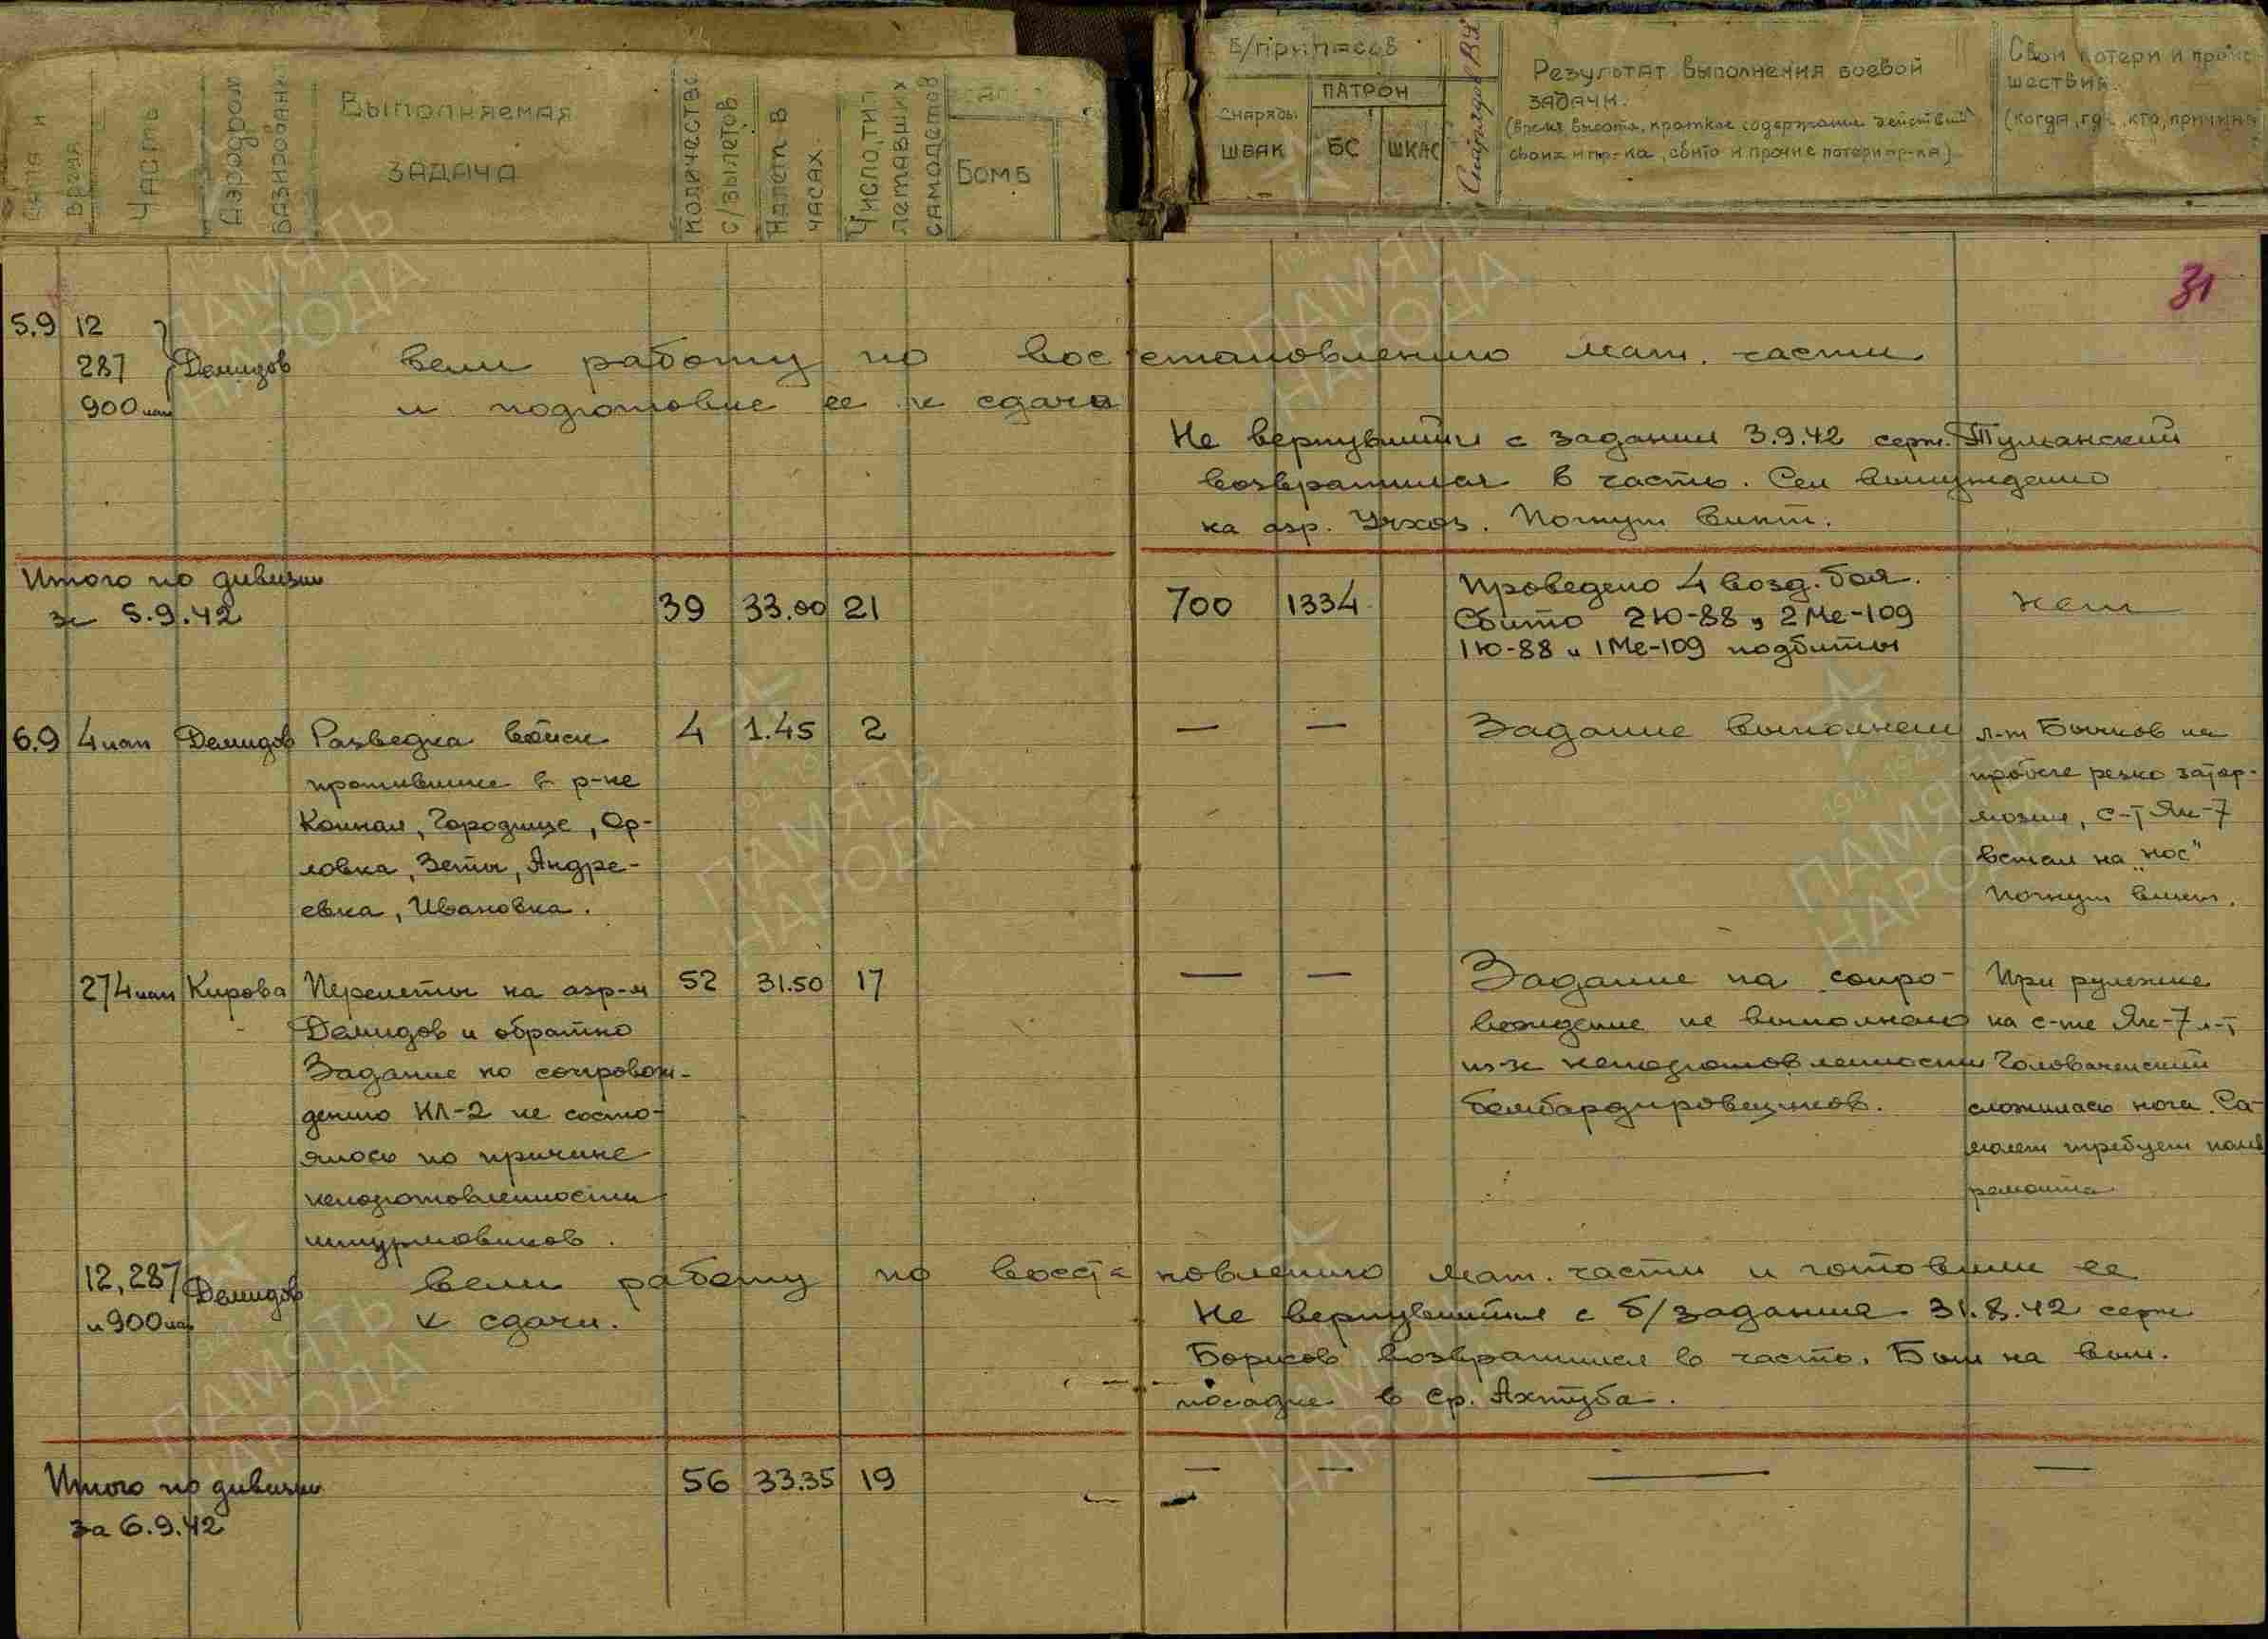 Дата и время
Часть
Аэродром базирования
Выполняемая задача
Количество с/вылетов
Налет в часах.
Число, тип летавших самолетов
Бомб
Б/припасов
Снаряды ШВАК
Патрон
БС
ШКАС
Снарядов
Результат выполнения боевой
задачи.
(время, высота, краткое содержание действий
своих и пр-ка, сбито и прочие потери пр-ка)
Свои потери и проис-
шествия.
(когда, где, кто, причина)
31
5.9 12
287 Демидов вели работу по восстановлению мат. части
900 иап и подготовке ее к сдачи
Не вернувшийся с задания 3.9.42 серж. Туманский
возвратился в часть. Сел вынужденно
на аэр. Учхоз. Погнут винт.
Итого по дивизии
за 5.9.42 39 33.00 21 700 1334
Проведено 4 возд. боя.
Сбито 2Ю-88 и 2Ме-109
1Ю-88 и 1Ме-109 подбиты
нет
6.9 4 иап Демидов Разведка войск 4 1.45 2 — —
противника в р-не
Конная, Городище, Ор-
ловка, Зеты, Андре-
евка, Ивановка.
Задание выполнено
л-т Бычков на
пробеге резко затор-
мозил, с-т Як-7
встал на "нос"
Погнут винт.
274 иап Кирова Перелеты на аэр-м 52 31.50 17 — —
Демидов и обратно
Задание по сопровож-
дению ИЛ-2 не состо-
ялось по причине
неподготовленности
штурмовиков.
Задание на сопро-
вождение не выполнено
из-за неподготовленности
бомбардировщиков.
При рулежке
на с-те Як-7 л-т
сложилась нога. Са-
молет требует полев
ремонта
12, 287 Демидов вели работу по восстановлению мат. части и готовили ее
и 900 иап к сдачи.
Не вернувшийся с б/задания 31.8.42 серж
Борисов возвратился в часть. Был на вын.
посадке в Ср. Ахтуба.
Итого по дивизии 56 33.35 19 — — — —
за 6.9.42
ПАМЯТЬ
НАРОДА
1941-1945